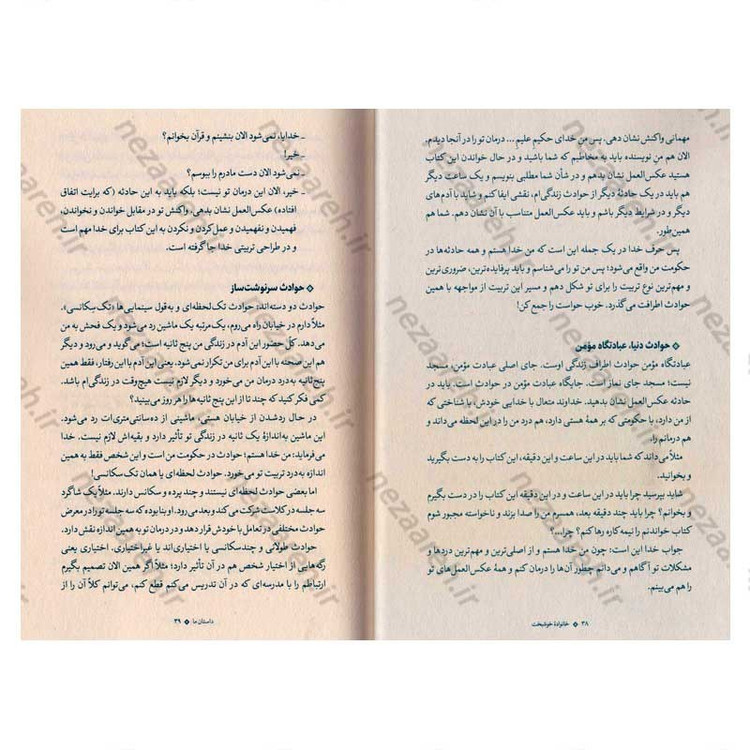 مهمانی واکنش نشان دهی، پس منِ خدای حکیمِ علیم... درمان تو را در آنجا دیدم.
الان هم منِ نویسنده باید به مخاطبم که شما باشید و در حال خواندن این کتاب
هستید عکس‌العمل نشان بدهم و در شأن شما مطلبی بنویسم و یک ساعت دیگر
هم باید در یک حادثهٔ دیگر از حوادث زندگی‌ام، نقشی ایفا کنم و باید با آدم‌های
دیگر و در شرایط دیگر باشم و باید عکس‌العمل متناسب با آن نشان دهم. شما هم
همین‌طور.
پس حرف خدا در یک جمله این است که من خدا هستم و همه حادثه‌ها در
حکومت من واقع می‌شود؛ پس من تو را می‌شناسم و باید پرفایده‌ترین، ضروری‌ترین
و مهم‌ترین نوع تربیت را برای تو شکل دهم و مسیر این تربیت از مواجهه با همین
حوادث اطرافت می‌گذرد. خوب حواست را جمع کن!
❖ حوادث دنیا، عبادتگاه مؤمن
عبادتگاه مؤمن حوادث اطراف زندگی اوست. جای اصلی عبادت مؤمن، مسجد
نیست؛ مسجد جای نماز است. جایگاه عبادت مؤمن در حوادث است. باید در
حادثه عکس‌العمل نشان بدهید. خداوند متعال با خدایی خودش، با شناختی که
از من دارد، با حکومتی که بر همهٔ هستی دارد، هم درد من را در این لحظه می‌داند و
هم درمانم را.
مثلاً می‌داند که شما باید در این ساعت و این دقیقه، این کتاب را به دست بگیرید
و بخوانید.
شاید بپرسید چرا باید در این ساعت و در این دقیقه این کتاب را در دست بگیرم
و بخوانم؟ چرا باید چند دقیقه بعد، همسرم من را صدا بزند و ناخواسته مجبور شوم
کتاب خواندنم را نیمه‌کاره رها کنم؟ چرا...؟
جواب خدا این است: چون من خدا هستم و از اصلی‌ترین و مهم‌ترین دردها و
مشکلات تو آگاهم و می‌دانم چطور آن‌ها را درمان کنم و همهٔ عکس‌العمل‌های تو
را هم می‌بینم.
۳۸ ❖ خانوادهٔ خوشبخت
ـ خدایا، نمی‌شود الان بنشینم و قرآن بخوانم؟
ـ خیر!
ـ نمی‌شود الان دست مادرم را ببوسم؟
ـ خیر، الان این درمان تو نیست؛ بلکه باید به این حادثه (که برایت اتفاق
افتاده) عکس‌العمل نشان بدهی. واکنش تو در مقابل خواندن و نخواندن،
فهمیدن و نفهمیدن و عمل کردن و نکردن به این کتاب برای خدا مهم است
و در طراحی تربیتی خدا جا گرفته است.
❖ حوادث سرنوشت‌ساز
حوادث دو دسته‌اند: حوادث تک‌لحظه‌ای و به‌قول سینمایی‌ها «تک‌سکانسی».
مثلاً دارم در خیابان راه می‌روم، یک‌مرتبه یک ماشین رد می‌شود و یک فحش به من
می‌دهد. کل حضور این آدم در زندگی من پنج ثانیه است؛ می‌گوید و می‌رود و دیگر
هم این صحنه با این آدم برای من تکرار نمی‌شود. یعنی این آدم با این رفتار، فقط همین
پنج‌ثانیه به‌درد درمان من می‌خورد و دیگر لازم نیست هیچ‌وقت در زندگی‌ام باشد.
کمی فکر کنید که چند تا از این پنج‌ثانیه‌ها را هر روز می‌بینید؟
در حال رد شدن از خیابان هستی، ماشینی از ده‌سانتی‌متری‌ات رد می‌شود.
این ماشین به‌اندازهٔ یک ثانیه در زندگی تو تأثیر دارد و بقیه‌اش لازم نیست. خدا
می‌فرماید: من خدا هستم؛ حوادث در حکومت من است و این شخص فقط به همین
اندازه به‌درد تربیت تو می‌خورد. حوادث لحظه‌ای یا همان تک‌سکانسی!
اما بعضی حوادث لحظه‌ای نیستند و چند پرده و سکانس دارند. مثلاً یک شاگرد
سه جلسه در کلاست شرکت می‌کند و بعد می‌رود. او بنا بوده که سه جلسه تو را در معرض
حوادث مختلفی در تعامل با خودش قرار دهد و در درمان تو به همین اندازه نقش دارد.
حوادث طولانی و چندسکانسی یا اختیاری‌اند یا غیراختیاری. اختیاری یعنی
رگه‌هایی از اختیار شخص هم در آن تأثیر دارد؛ مثلاً اگر همین الان تصمیم بگیرم
ارتباطم را با مدرسه‌ای که در آن تدریس می‌کنم قطع کنم، می‌توانم کلاً آن را از
داستان ما ❖ ۳۹
nezaareh.ir